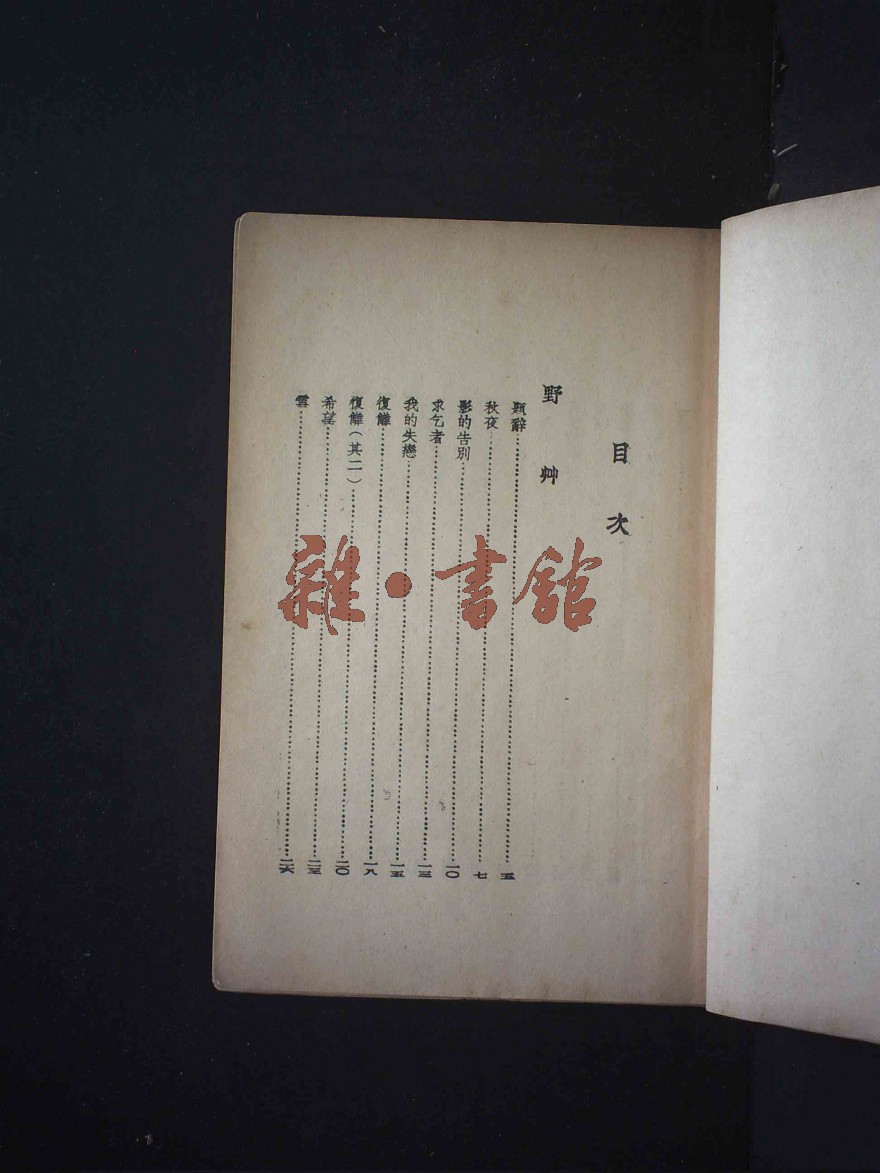 目次
野艸
題辭 五
秋夜 七
影的告別 一〇
求乞者 一三
我的失戀 一五
復讎 一八
復讎(其二) 二〇
希望 二三
雪 二六
雜·書館